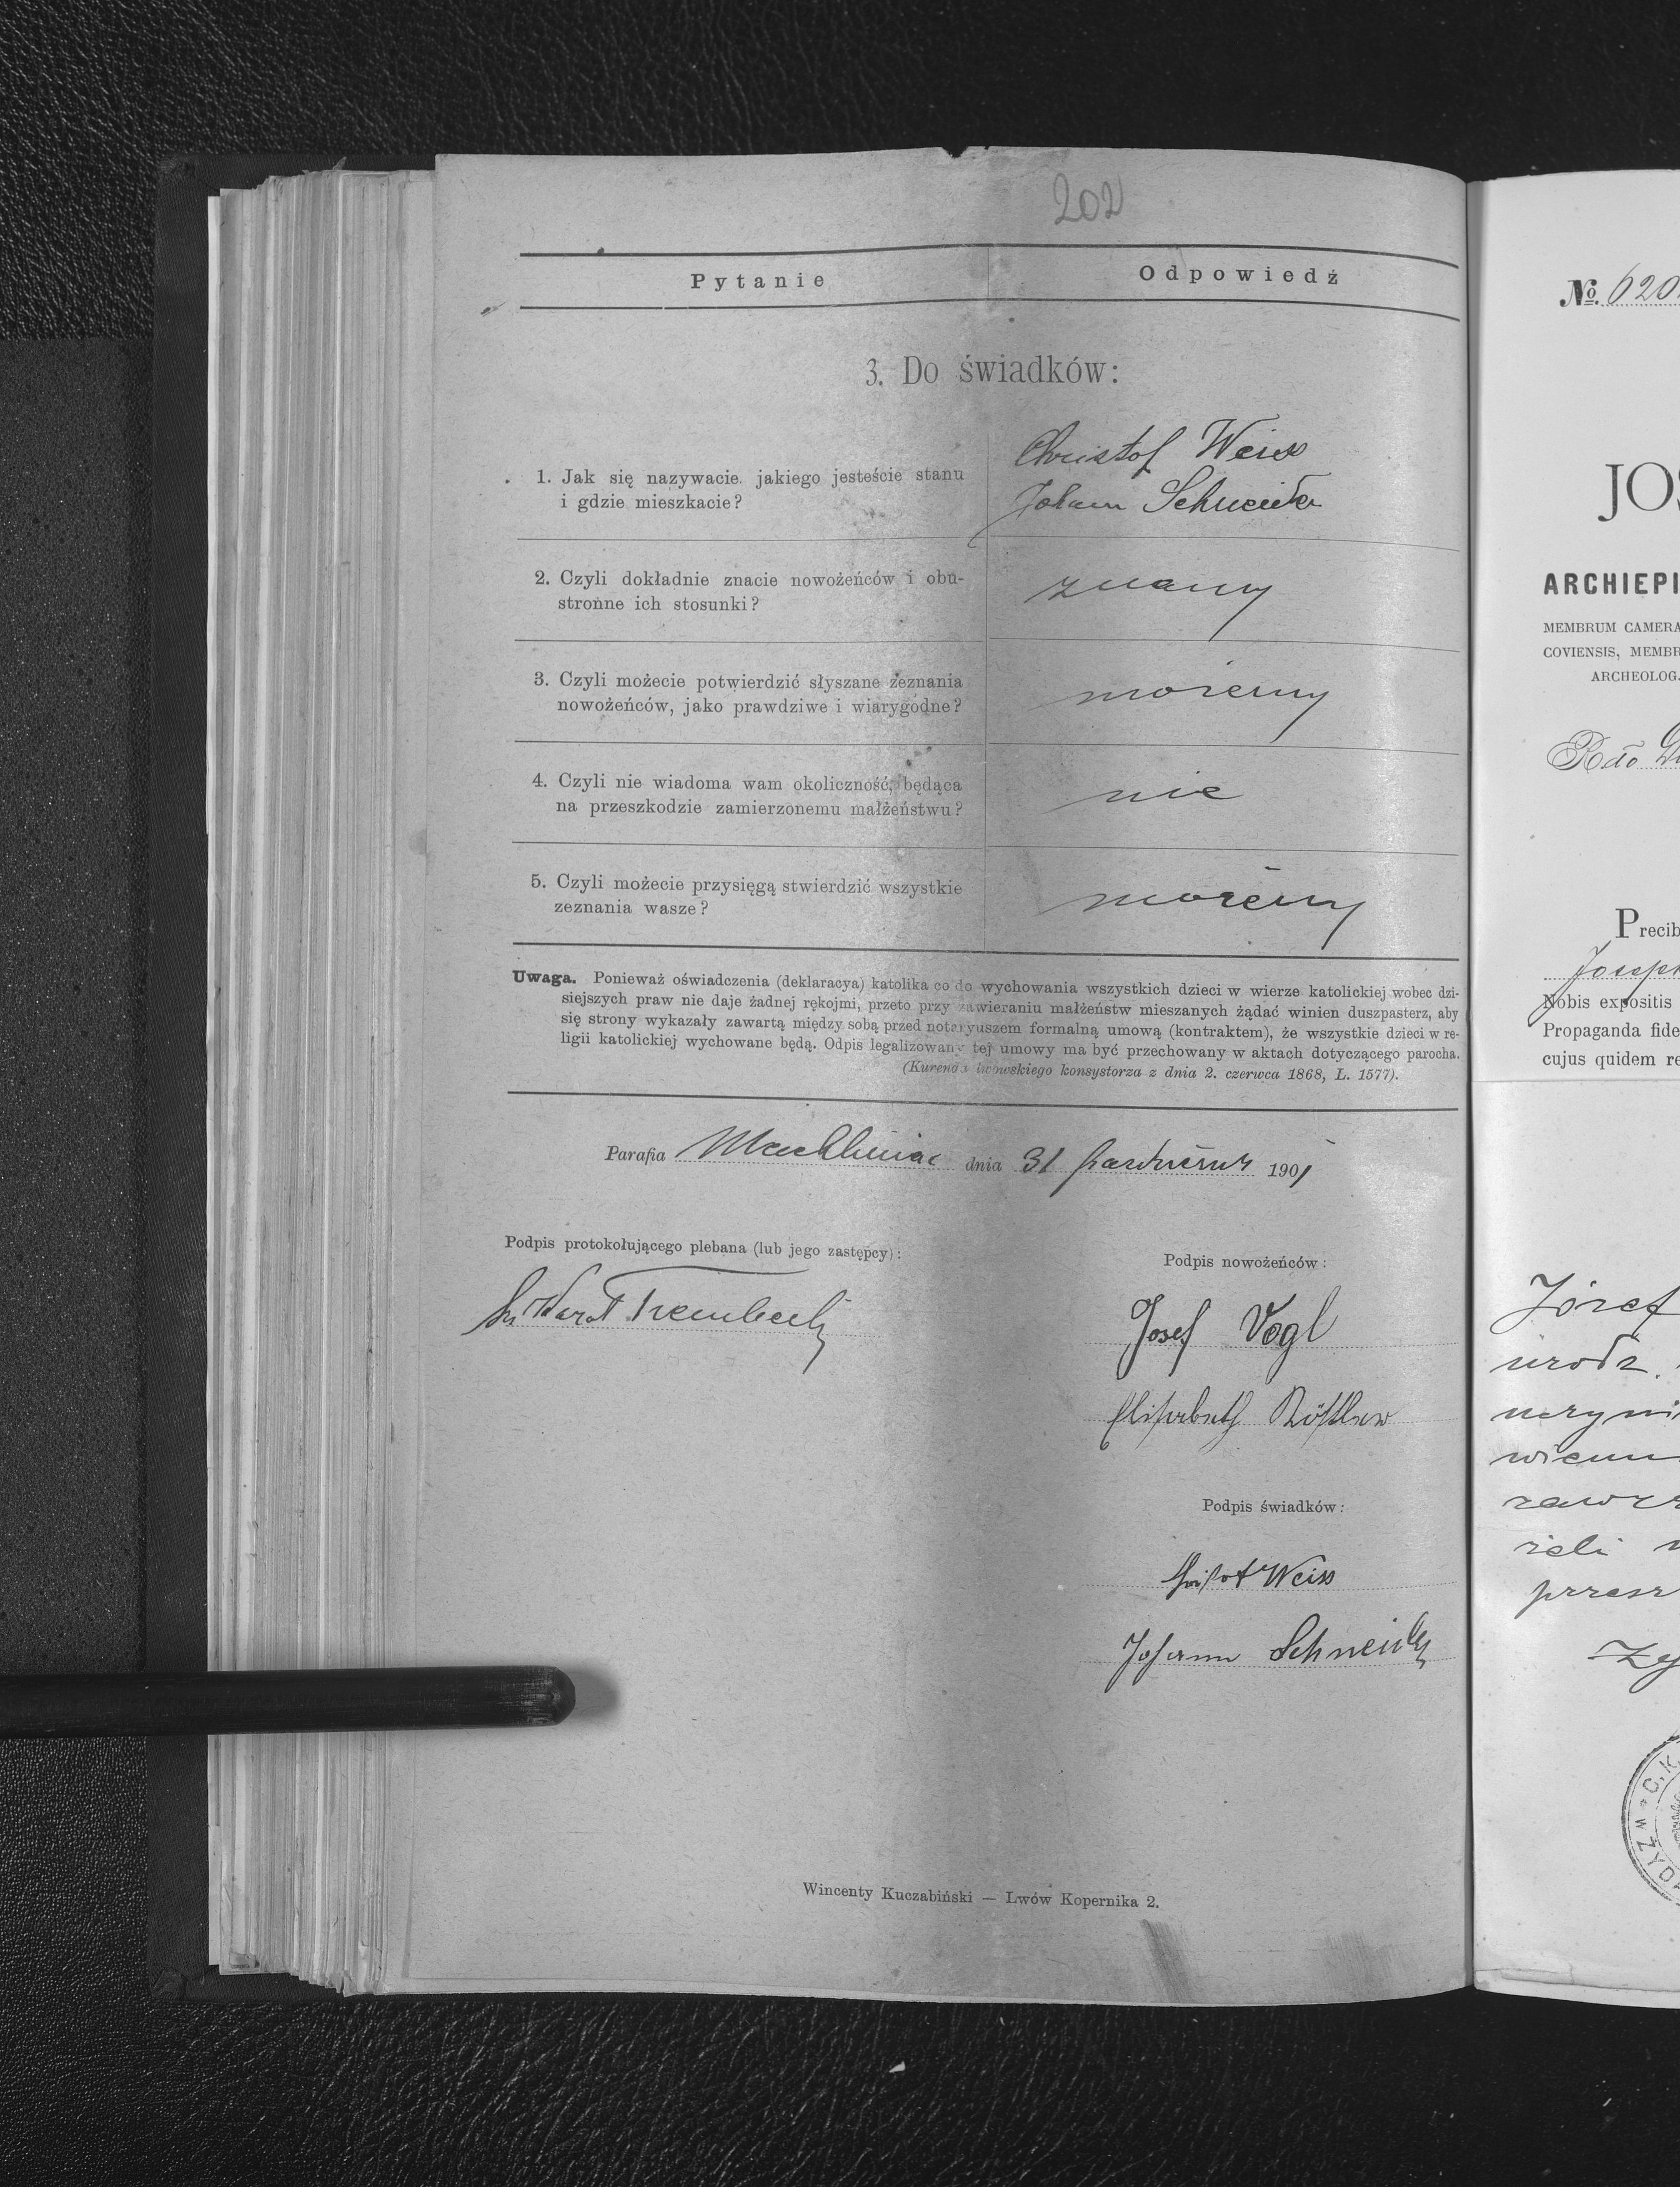 202
Pytanie Odpowiedź
3. Do świadków:
1. Jak się nazywacie jakiego jesteście stanu
i gdzie mieszkacie?
Christof Weiss
Johann Schneider
2. Czyli dokładnie znacie nowożeńców i obu-
stronne ich stosunki?
znamy
3. Czyli możecie potwierdzić słyszane zeznania
nowożeńców, jako prawdziwe i wiarygodne?
możemy
4. Czyli nie wiadoma wam okoliczność, będąca
na przeszkodzie zamierzonemu małżeństwu?
nie
5. Czyli możecie przysięgą stwierdzić wszystkie
zeznania wasze?
możemy
Uwaga. Ponieważ oświadczenia (deklaracya) katolika co do wychowania wszystkich dzieci w wierze katolickiej wobec dzi-
siejszych praw nie daje żadnej rękojmi, przeto przy zawieraniu małżeństw mieszanych żądać winien duszpasterz, aby
się strony wykazały zawartą między sobą przed notaryuszem formalną umową (kontraktem), że wszystkie dzieci w re-
ligii katolickiej wychowane będą. Odpis legalizowany tej umowy ma być przechowany w aktach dotyczącego parocha.
(Kurenda lwowskiego konsystorza z dnia 2. czerwca 1868, L. 1577).
Parafia dnia 31 październik 1901
Podpis protokołującego plebana (lub jego zastępcy):
Trembecki
Podpis nowożeńców:
Josef Vogl
Elisabeth Rößler
Podpis świadków:
Weiss
Johann Schneider
Wincenty Kuczabiński — Lwów Kopernika 2.
No. 620
JOS
ARCHIEPI
MEMBRUM CAMERA
COVIENSIS, MEMBR
ARCHEOLOG.
Precib
Joseph
Nobis expositis
Propaganda fide
cujus quidem re
Józef
urodz.